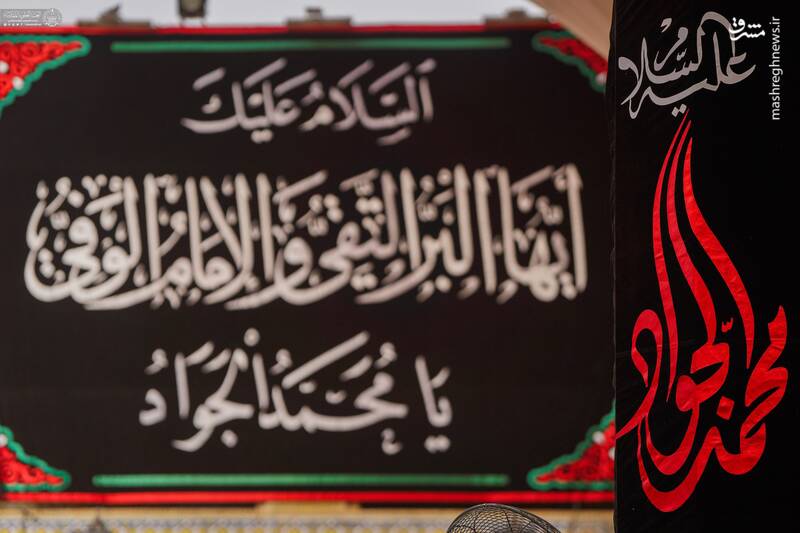 السَّلَامُ عَلَيْكَ
أَيُّهَا الْبَرُّ التَّقِيُّ وَالْإِمَامُ الْوَفِيُّ
يَا مُحَمَّدُ الْجَوَادُ
عليه السلام
محمد الجواد
مشرق
mashreghnews.ir